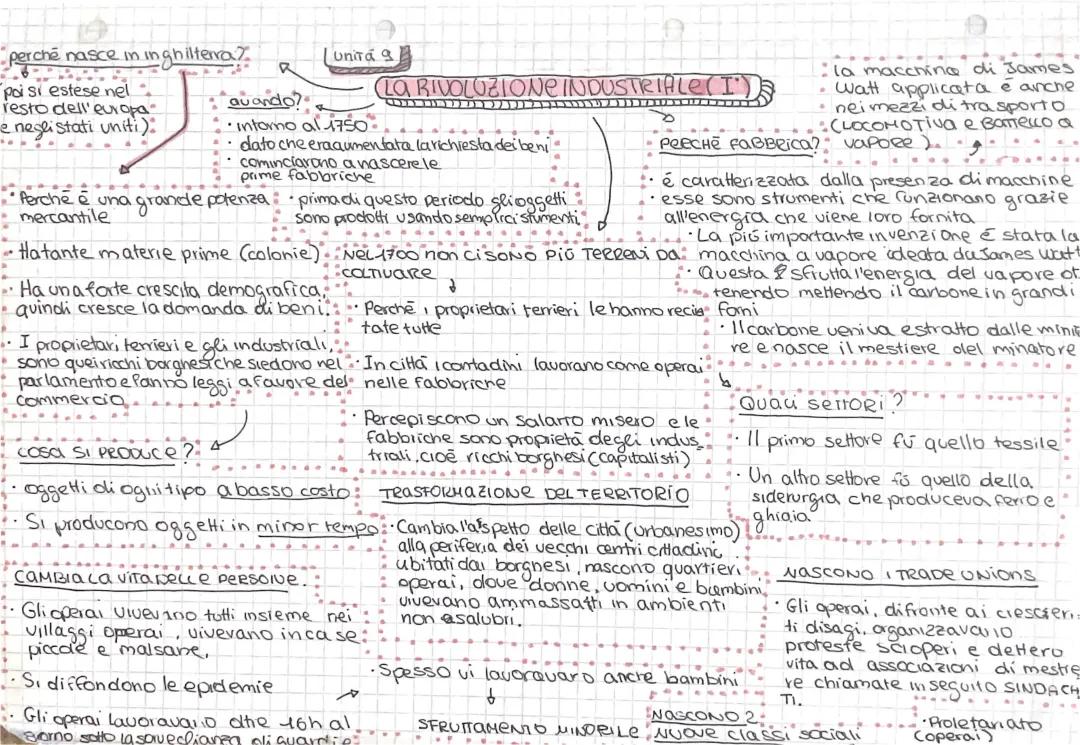 unità 9
LA RIVOLUZIONE INDUSTRIALE (I°)
perchē nasce in inghilterra?
poi si estese nel
resto dell'europa
e negli stati uniti)
• Perchē ē una grande potenza
mercantile
• Ha tante materie prime (colonie)
• Ha una forte crescita demografica,
quindi cresce la domanda di beni.
• I proprietari terrieri e gli industriali,
sono quei ricchi borghesi che siedono nel
parlamento e fanno leggi a favore del
commercio
quando?
• intorno al 1750
• dato che era aumentata la richiesta dei beni
• cominciarono a nascere le
prime fabbriche
• prima di questo periodo gli oggetti
sono prodotti usando semplici strumenti
NEL 1700 non CI SONO PIÚ TERRENI DA
COLTIVARE
• Perchē i proprietari terrieri le hanno recin
tate tutte
• In cittā i contadini lavorano come operai
nelle fabbriche
• Percepiscono un salario misero e le
fabbriche sono proprietā degli indus_
triali, cioē ricchi borghesi (capitalisti)
la macchina di James
Watt applicata e anche
nei mezzi di trasporto
(LOCOMOTIVA e BATTELLO a
VAPORE).
PERCHĒ FABBRICA?
• ē caratterizzata dalla presenza di macchine
• esse sono strumenti che funzionano grazie
all'energia che viene loro fornita
• La piú importante invenzione ē stata la
macchina a vapore ideata da James Watt
• Questa sfrutta l'energia del vapore ot
tenendo mettendo il carbone in grandi
forni
• Il carbone veniva estratto dalle minie
re e nasce il mestiere del minatore
Quali SETTORI?
• Il primo settore fú quello tessile
• Un altro settore fú quello della
siderurgia che produceva ferro e
ghiaia
COSA SI PRODUCE?
• oggetti di ogni tipo a basso costo
• Si producono oggetti in minor tempo
CAMBIA LA VITA DELLE PERSONE.
• Gli operai vivevano tutti insieme nei
villaggi operai, vivevano in case
piccole e malsane,
• Si diffondono le epidemie
• Gli operai lavoravano oltre 16h al
giorno sotto la sorveglianza di guardie
TRASFORMAZIONE DEL TERRITORIO
• Cambia l'aspetto delle cittā (urbanesimo)
alla periferia dei vecchi centri cittadini
abitati dai borghesi, nascono quartieri
operai, dove donne, uomini e bambini
vivevano ammassatti in ambienti
non salubri.
• Spesso vi lavoravano anche bambini
SFRUTTAMENTO MINORILE
NASCONO I TRADE UNIONS
• Gli operai, difronte ai crescien
ti disagi, organizzavano
proteste scioperi e dettero
vita ad associazioni di mestie
re chiamate in seguito SINDACA
TI.
NASCONO 2
NUOVE classi sociali
• Proletariato
(operai)